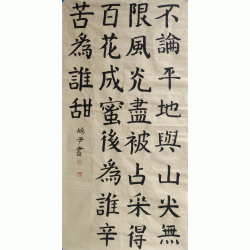 不論平地與山尖無
限風光盡被占采得
百花成蜜後為誰辛
苦為誰甜
尹書